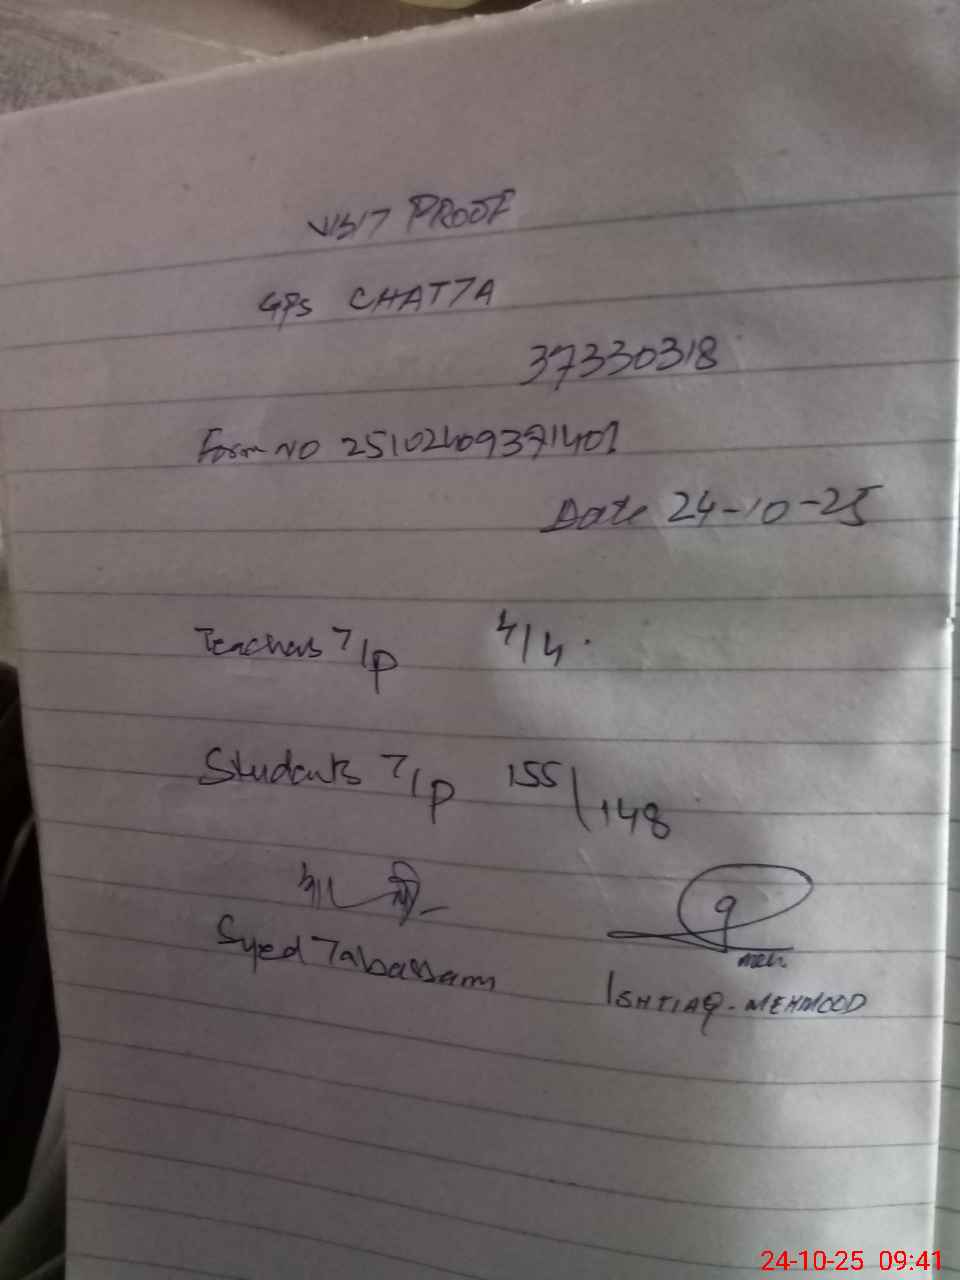 VISIT PROOF
GPS CHATTA
37330318
Form NO 25102409371401
Date 24-10-25
Teachers T/P 4/4
Students T/P 155/148
Syed Tabassam
meh
ISHTIAQ-MEHMOOD
24-10-25 09:41